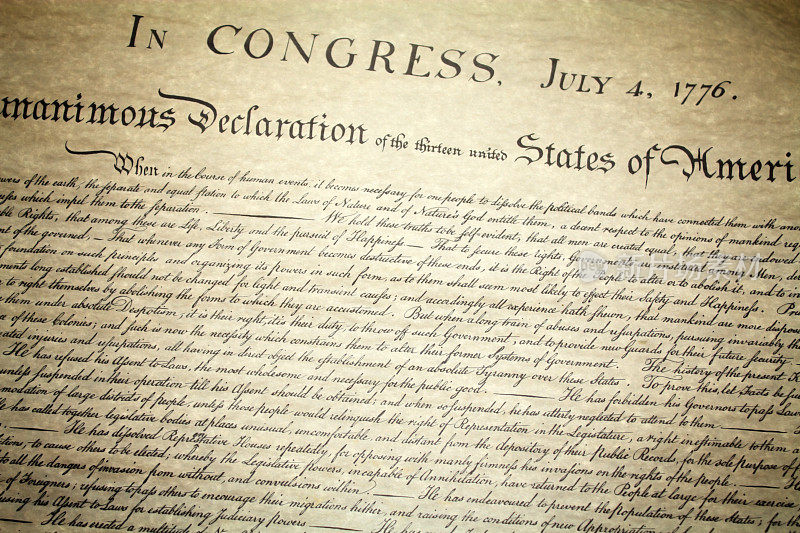 IN CONGRESS, JULY 4, 1776.
manimous Declaration of the thirteen united States of Ameri
When in the Course of human events, it becomes necessary for one people to dissolve the political bands which have connected them with ano
wers of the earth, the separate and equal station to which the Laws of Nature and of Nature's God entitle them, a decent respect to the opinions of mankind req
uses which impel them to the separation. We hold these truths to be self-evident, that all men are created equal, that they are endowed
ble Rights, that among these are Life, Liberty and the pursuit of Happiness.— That to secure these rights, Gov Men, de
nt of the governed,— That whenever any Form of Government becomes destructive of these ends, it is the Right of the People to alter or to abolish it, and to in
foundation on such principles and organizing its powers in such form, as to them shall seem most likely to effect their Safety and Happiness. Pru
ments long established should not be changed for light and transient causes; and accordingly all experience hath shewn, that mankind are more dispos
to right themselves by abolishing the forms to which they are accustomed. But when a long train of abuses and usurpations, pursuing invariably th
e them under absolute Despotism, it is their right, it is their duty, to throw off such Government, and to provide new Guards for their future security.
e of these Colonies; and such is now the necessity which constrains them to alter their former Systems of Government. The history of the present K
eated injuries and usurpations, all having in direct object the establishment of an absolute Tyranny over these States. To prove this, let Facts be
He has refused his Assent to Laws, the most wholesome and necessary for the public good. He has forbidden his Governors to pass Laws
unless suspended in their operation till his Assent should be obtained; and when so suspended, he has utterly neglected to attend to them
modation of large districts of people, unless those people would relinquish the right of Representation in the Legislature, a right inestimable to them a
He has called together legislative bodies at places unusual, uncomfortable, and distant from the depository of their Public Records, for the sole purpose of
He has dissolved Representative Houses repeatedly, for opposing with manly firmness his invasions on the rights of the people.
tions, to cause others to be elected; whereby the Legislative powers, incapable of Annihilation, have returned to the People at large for their exercise
to all the dangers of invasion from without, and convulsions within. He has endeavoured to prevent the population of these States; for th
of Foreigners; refusing to pass others to encourage their migrations hither, and raising the conditions of new Appropriation
fusing his Assent to Laws for establishing Judiciary powers. He has
He has erected a multitude of